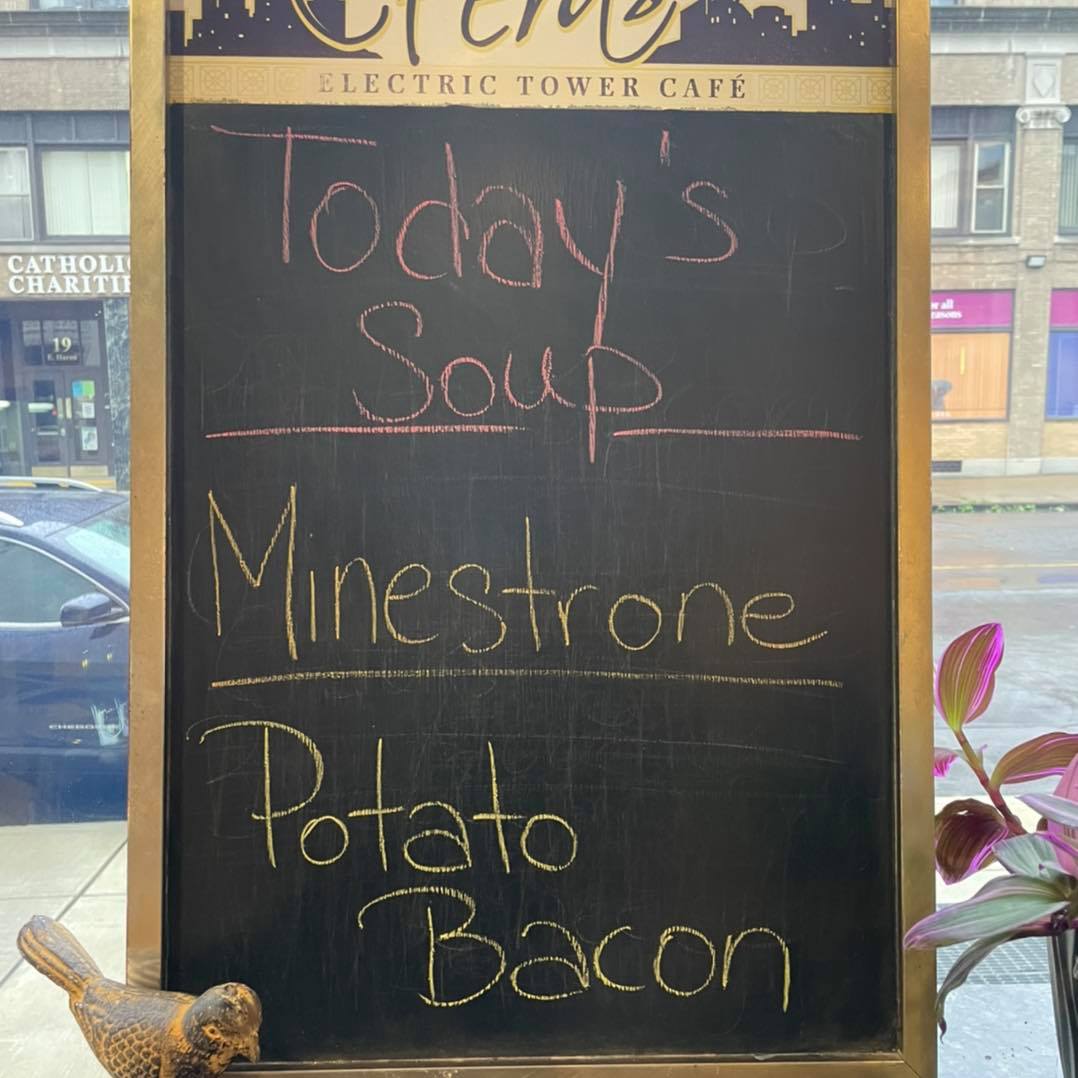 ELECTRIC TOWER CAFÉ
Today's
Soup
Minestrone
Potato
Bacon
CATHOLIC
CHARITIE
19